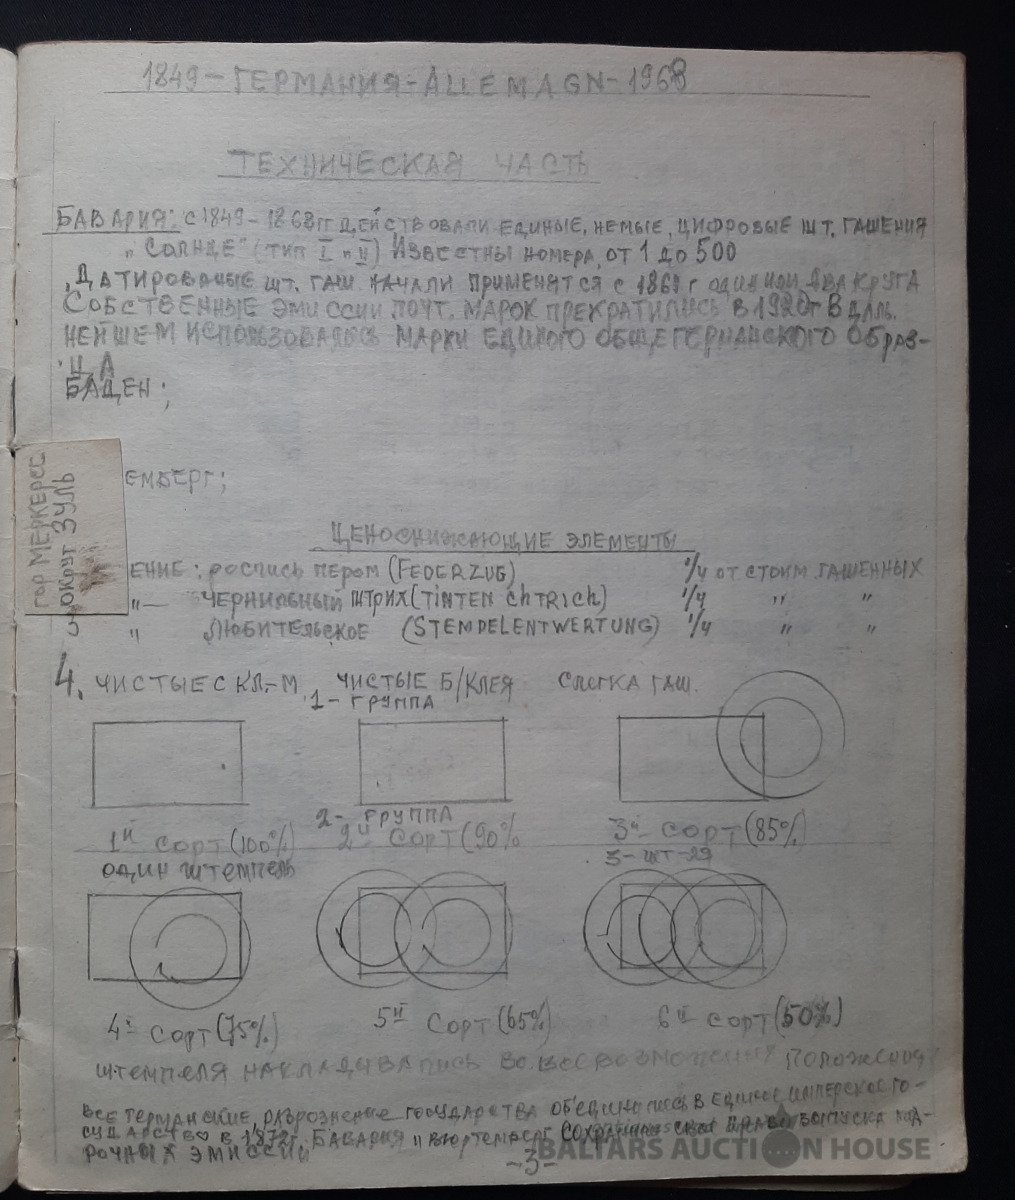 1849 – ГЕРМАНИЯ – ALLEMAGN – 1968
ТЕХНИЧЕСКАЯ ЧАСТЬ
БАВАРИЯ: с 1849 – 1868 гг ДЕЙСТВОВАЛИ ЕДИНЫЕ, НЕМЫЕ, ЦИФРОВЫЕ ШТ. ГАШЕНИЯ
„СОЛНЦЕ" (ТИП I и II) ИЗВЕСТНЫ НОМЕРА, ОТ 1 ДО 500
ДАТИРОВАНЫЕ ШТ. ГАШ НАЧАЛИ ПРИМЕНЯТСЯ с 1869 г ОДИН ИЛИ ДВА КРУГА
СОБСТВЕННЫЕ ЭМИССИИ ПОЧТ. МАРОК ПРЕКРАТИЛИСЬ В 1920г В ДАЛЬ-
НЕЙШЕМ ИСПОЛЬЗОВАЛИСЬ МАРКИ ЕДИНОГО ОБЩЕГЕРМАНСКОГО ОБРАЗ-
ЦА
БАДЕН;
ЕМБЕРГ;
гор МЕРКЕРЕС
округ ЗУЛЬ
ЦЕНОСНИЖАЮЩИЕ ЭЛЕМЕНТЫ
ЕНИЕ: РОСПИСЬ ПЕРОМ (FEDERZUG) 1/4 ОТ СТОИМ. ГАШЕННЫХ
„— ЧЕРНИЛЬНЫЙ ШТРИХ (TINTEN ChTRICh) 1/4 „ „
„ ЛЮБИТЕЛЬСКОЕ (STEMPELENTWERTUNG) 1/4 „ „
4. ЧИСТЫЕ С КЛ.-М. ЧИСТЫЕ Б/КЛЕЯ СЛЕГКА ГАШ.
1 - ГРУППА
2 - ГРУППА
1й СОРТ (100%) 2й СОРТ (90% 3й СОРТ (85%)
ОДИН ШТЕМПЕЛЬ 3 - ШТ-ЛЯ
4й СОРТ (75%) 5й СОРТ (65%) 6й СОРТ (50%)
ШТЕМПЕЛЯ НАКЛАДЫВАЛИСЬ ВО ВСЕВОЗМОЖНЫХ ПОЛОЖЕНИЯ
ВСЕ ГЕРМАНСКИЕ, РАЗРОЗНЕНЫЕ ГОСУДАРСТВА ОБ'ЕДИНИЛИСЬ В ЕДИНОЕ ИМПЕРСКОЕ ГО-
СУДАРСТВО В 1872г. БАВАРИЯ И ВЮРТЕМБЕРГ СОХРАНИЛИ СВОИ ПРАВА ВЫПУСКА МАД-
РОЧНЫХ ЭМИССИЙ
-3-
BALTARS AUCTION HOUSE